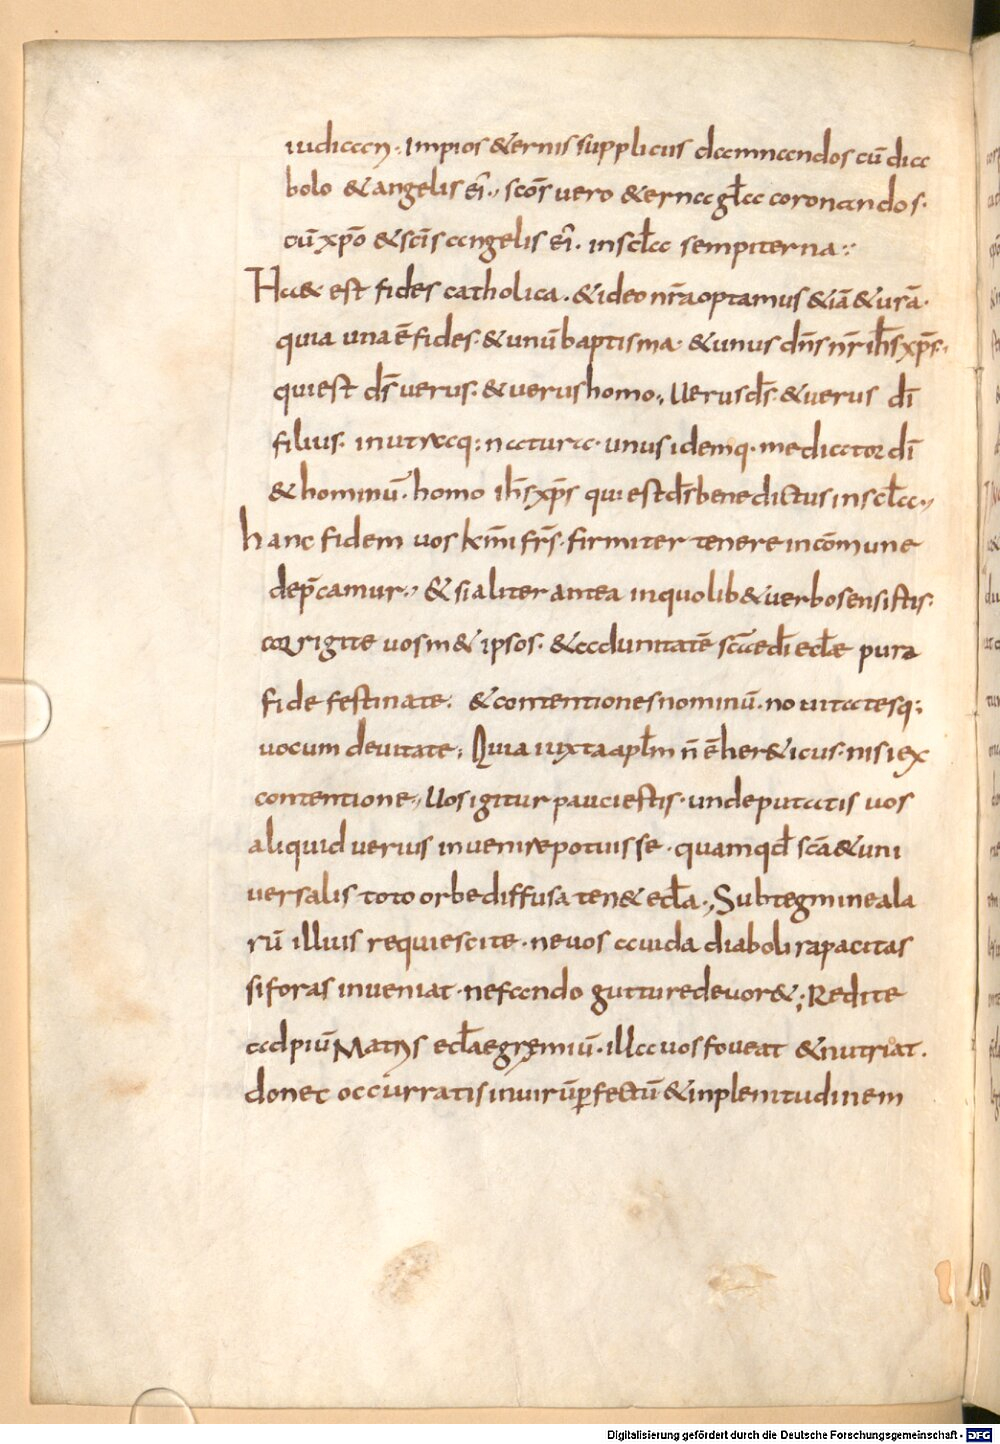 iudican; Impios &ernis suppliciis damnandos cū dia
bolo & angelis ei᷒; scōs vero & erna gl̄a coronandos.
cū xp̄o & sc̄is angelis ei᷒. in sc̄la sempiterna;
Haec est fides catholica. & ideo nr̄a optamus & iā & urā.
quia una ē fides. & unū baptisma. & unus dn̄s nr̄ ih̄s xp̄s.
qui est ds̄ verus. & verus homo; Uerus ds̄. & verus dī
filius. in utraq; natura. unus idemq. mediator dī
& hominū. homo ih̄s xp̄s qui est ds̄ benedictus in scl̄a;
hanc fidem vos km̄i frs̄. firmiter tenere in com̄une
dep̄camur; & si aliter antea in quolib& verbo sensistis.
corrigite uosm& ipsos. & ad unitatē scāe dī ecl̄æ pura
fide festinate. & contentiones nominū. novitatesq;
vocum devitate; Quia iuxta apl̄m n̄ ē her&icus. nisi ex
contentione; Uos igitur pauci estis. unde putatis vos
aliquid verius invenire potuisse. quam qd̄ scā & uni
versalis toto orbe diffusa ten& ecl̄a; Sub tegmine ala
rū illius requiescite. ne vos avida diaboli rapacitas
si foras inveniat. nefando gutture devor&; Redite
ad piū Matris ecl̄ae gremiū. illa vos foveat & nutriat.
donec occurratis in virū p̱fectū & in plenitudinem
Digitalisierung gefördert durch die Deutsche Forschungsgemeinschaft - DFG